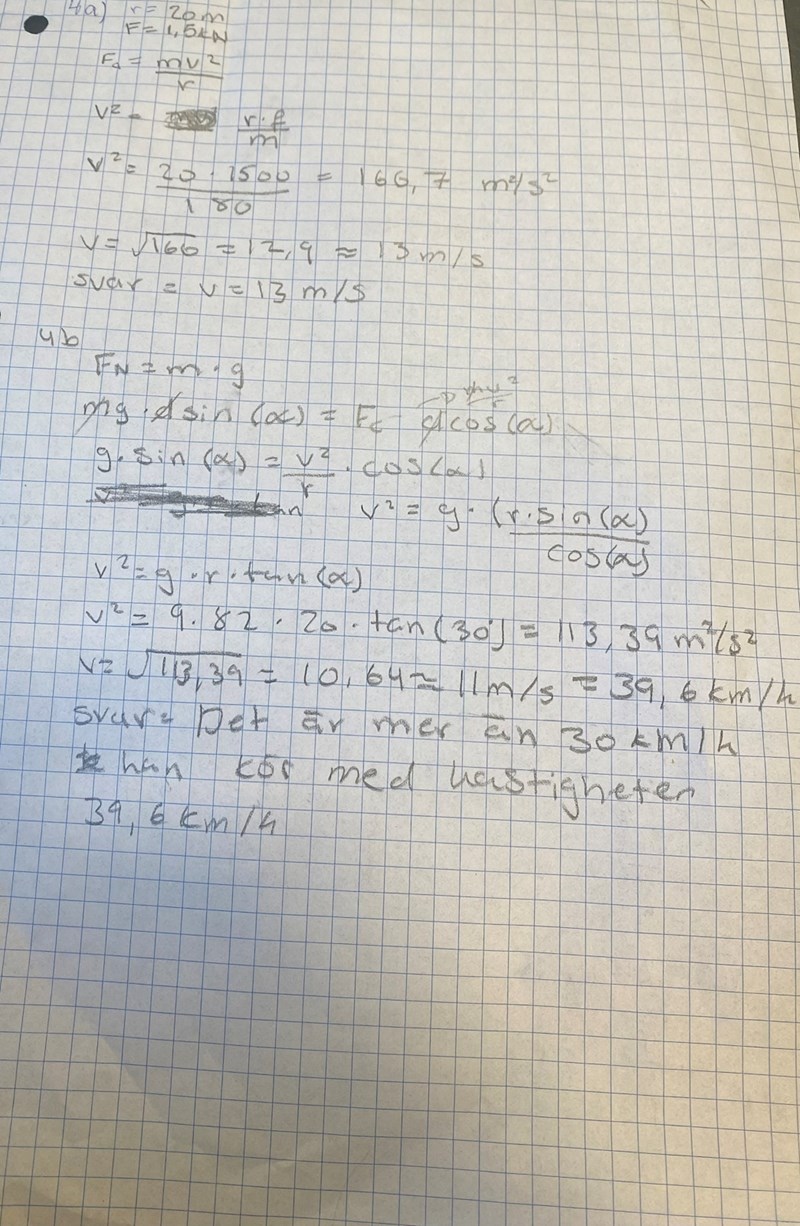 4a) r = 20m
F = 1,5kN
Fc = mv²/r
v² = r·F/m
v² = 20 · 1500/180 = 166,7 m²/s²
v = √166 = 12,9 ≈ 13 m/s
svar = v = 13 m/s
4b
FN = m · g
mg · d sin (α) = Fc d cos (α) → mv²/r
g · sin (α) = v²/r · cos(α)
v² = g · (r · sin(α)/cos(α)
v² = g · r · tan (α)
v² = 9.82 · 20 · tan(30) = 113,39 m²/s²
v = √113,39 = 10,64 ≈ 11 m/s = 39,6 km/h
svar = Det är mer än 30 km/h
han kör med hastigheten
39,6 km/h